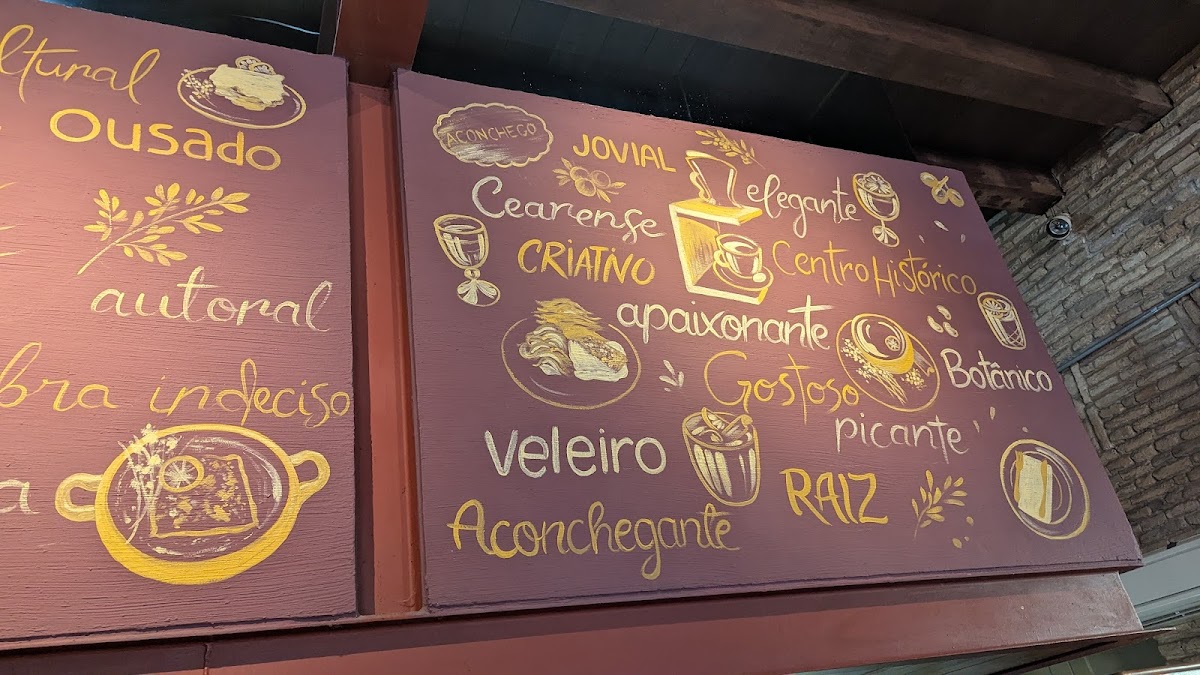 ltural
ousado
autoral
bra indeciso
a
ACONCHEGO
JOVIAL
elegante
Cearense
CRIATIVO
Centro Histórico
apaixonante
Gostoso
Botânico
picante
veleiro
RAIZ
Aconchegante